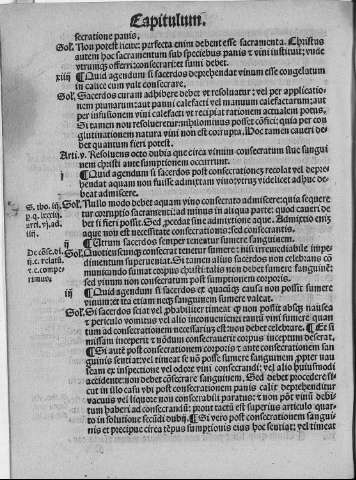 Capitulum.
secratione panis.
Sol. Non potest licite: perfecta enim debent esse sacramenta. Christus
autem hoc sacramentum sub speciebus panis et vini instituit; vnde
vtrumque offerri: consecrari: et sumi debet.
xiiij ¶ Quid agendum si sacerdos deprehendat vinum esse congelatum
in calice cum vult consecrare.
Sol. Sacerdos curam adhibere debet vt resoluatur: vel per applicatio-
nem prunarum: aut panni calefacti vel manuum calefactarum: aut
per infusionem vini calefacti vt recipiat rationem actualem potus.
Si tamen non resolueretur: nihilominus posset confici: quia per con
glutinationem natura vini non est corrupta. Hoc tamen caueri de-
bet quantum fieri potest.
Arti. v. Resoluens octo dubia que circa vinum consecratum siue sangui-
nem christi ante sumptionem occurrunt.
i ¶ Quid agendum si sacerdos post consecrationem recolat vel depre-
hendat aquam non fuisse admixtam vino: vtrum videlicet adhuc de-
beat admiscere.
Sol. Nullo modo debet aquam vino consecrato admiscere: quia seque
tur corruptio sacramenti: ad minus in aliqua parte: quod caueri de-
bet si fieri possit. Sed procedat sine admixtione aque. Admixtio enim
aque non est necessitatis consecrationis: sed consecrantis.
ij ¶ Utrum sacerdos semper teneatur sumere sanguinem.
Sol. Quotienscumque consecrat tenetur sumere: nisi irremediabile impe-
dimentum superueniat. Si tamen alius sacerdos non celebrans com
municando sumat corpus christi: talis non debet sumere sanguinem:
sed vinum non consecratum post sumptionem corporis.
iij ¶ Quid agendum si sacerdos ex quacumque causa non possit sumere
vinum: et ita etiam neque sanguinem sumere valeat.
Sol. Si sacerdos sciat vel probabiliter timeat quod non possit absque nausea
et periculo vomitus vel alio impedimento tanti vini sumere quan
tum ad consecrationem necessarium est: non debet celebrare. ¶ Et si
missam inceperit et nondum consecrauerit corpus inceptum deserat.
¶ Si autem post consecrationem corporis et ante consecrationem san
guinis sentiat: vel timeat se non posse sumere sanguinem propter nau
seam ex inspectione vel odore vini consecrandi: vel alio huiusmodi
accidente: non debet consecrare sanguinem. Sed debet procedere si-
cut in illo casu vbi post consecrationem panis calix deprehenditur
vacuus vel liquore non consecrabili paratus: et non potest vinum debi-
tum haberi ad consecrandum: prout tactum est superius articulo quar-
to in solutione secundi dubij. ¶ Si vero post consecrationem sangui-
nis et precipue circa tempus sumptionis eius hoc sentiat: vel timeat